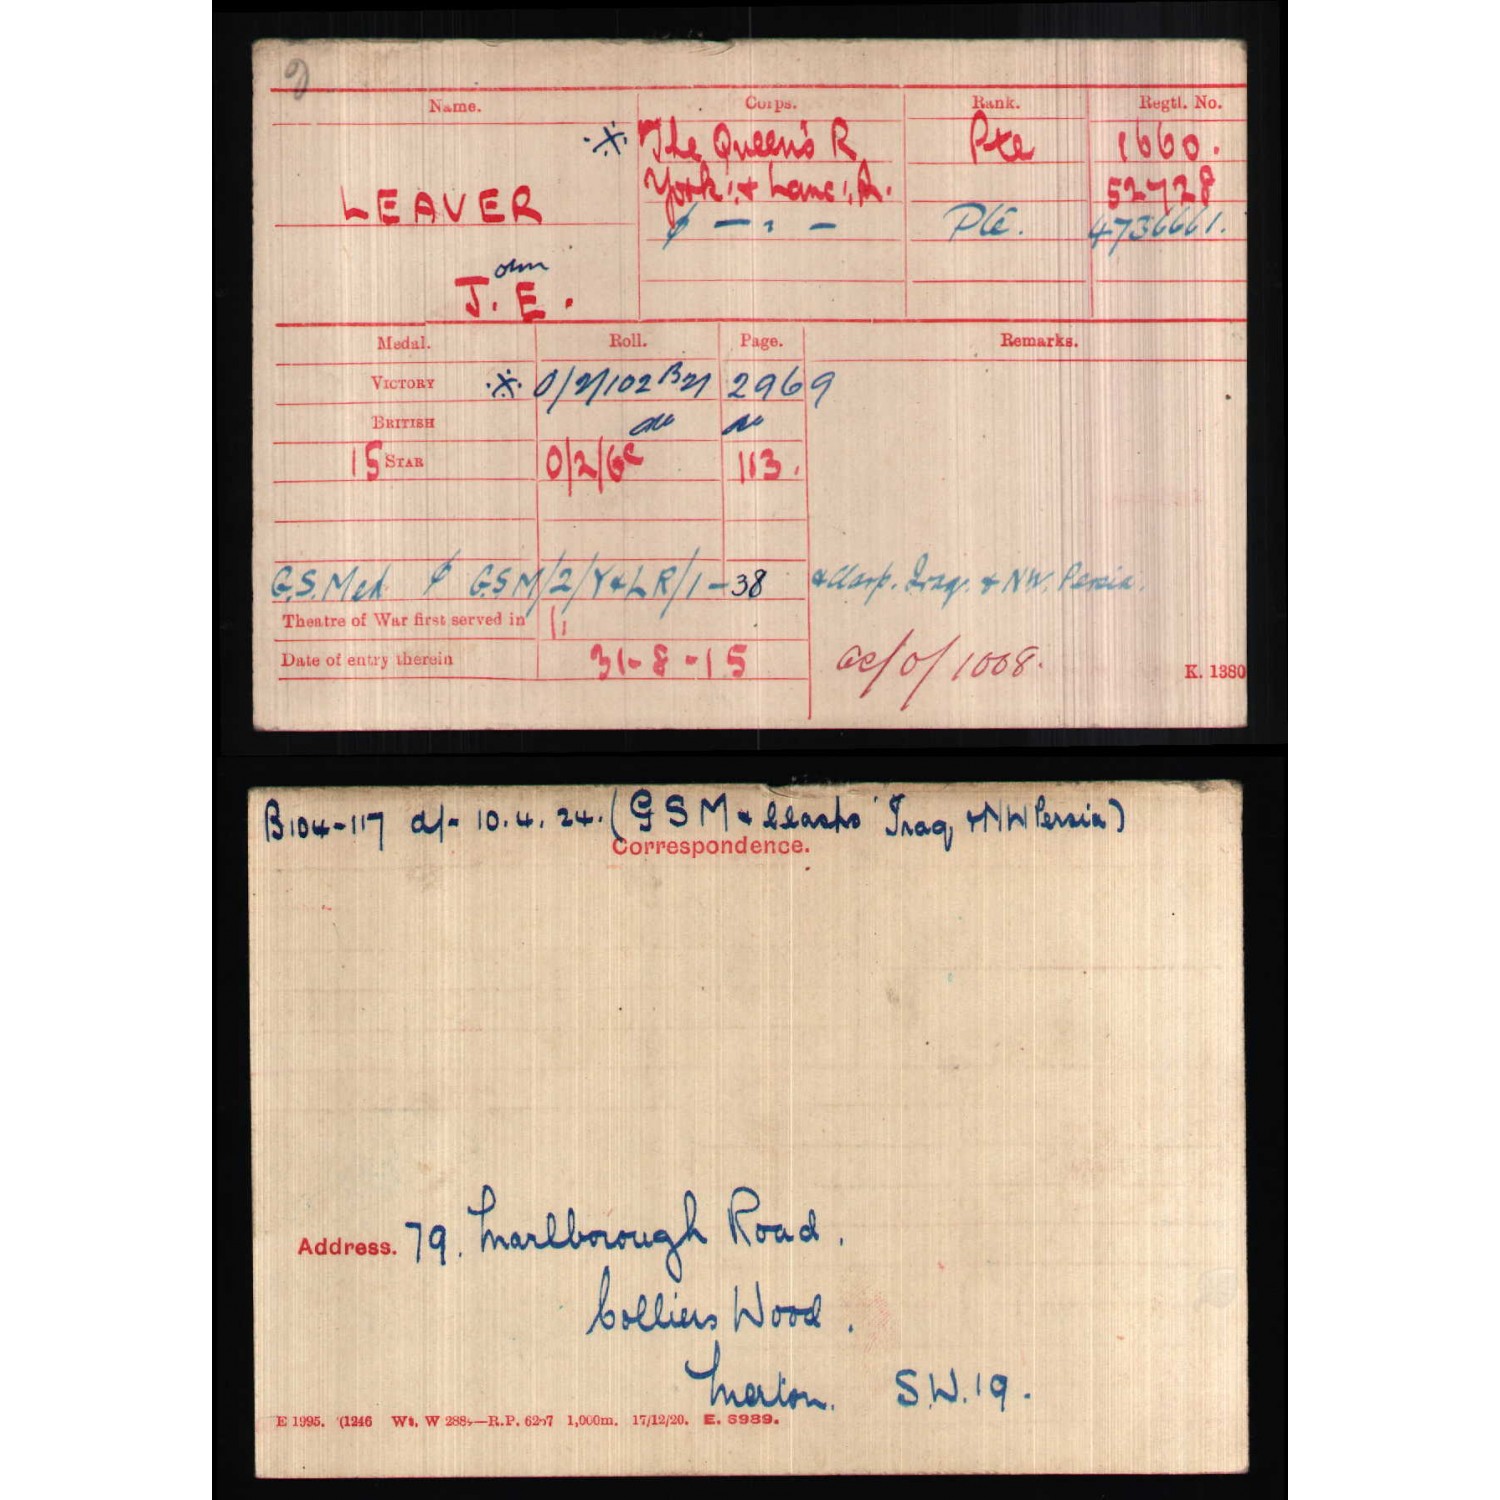 Name. Corps. Rank. Regtl. No.
The Queen's R Pte 1660.
LEAVER York: & Lanc: R. 52728
¢ — " — Pte. 4736661.
John
J. E.
Medal. Roll. Page. Remarks.
VICTORY O/2/102 B21 2969
BRITISH do do
15 STAR O/2/6C 113.
G.S. Med ¢ GSM/2/Y&LR/1 - 38 & Clasp. Iraq. & N.W. Persia.
Theatre of War first served in
Date of entry therein 31-8-15
/O/1008.
K. 1380
B104-117 d/- 10.4.24. (GSM & Clasps Iraq & NW Persia)
Correspondence.
Address. 79. Marlborough Road.
Colliers Wood.
Merton. S.W.19.
E 1995. (1246 Wt. W 288 —R.P. 62 7 1,000m. 17/12/20. E. 6989.